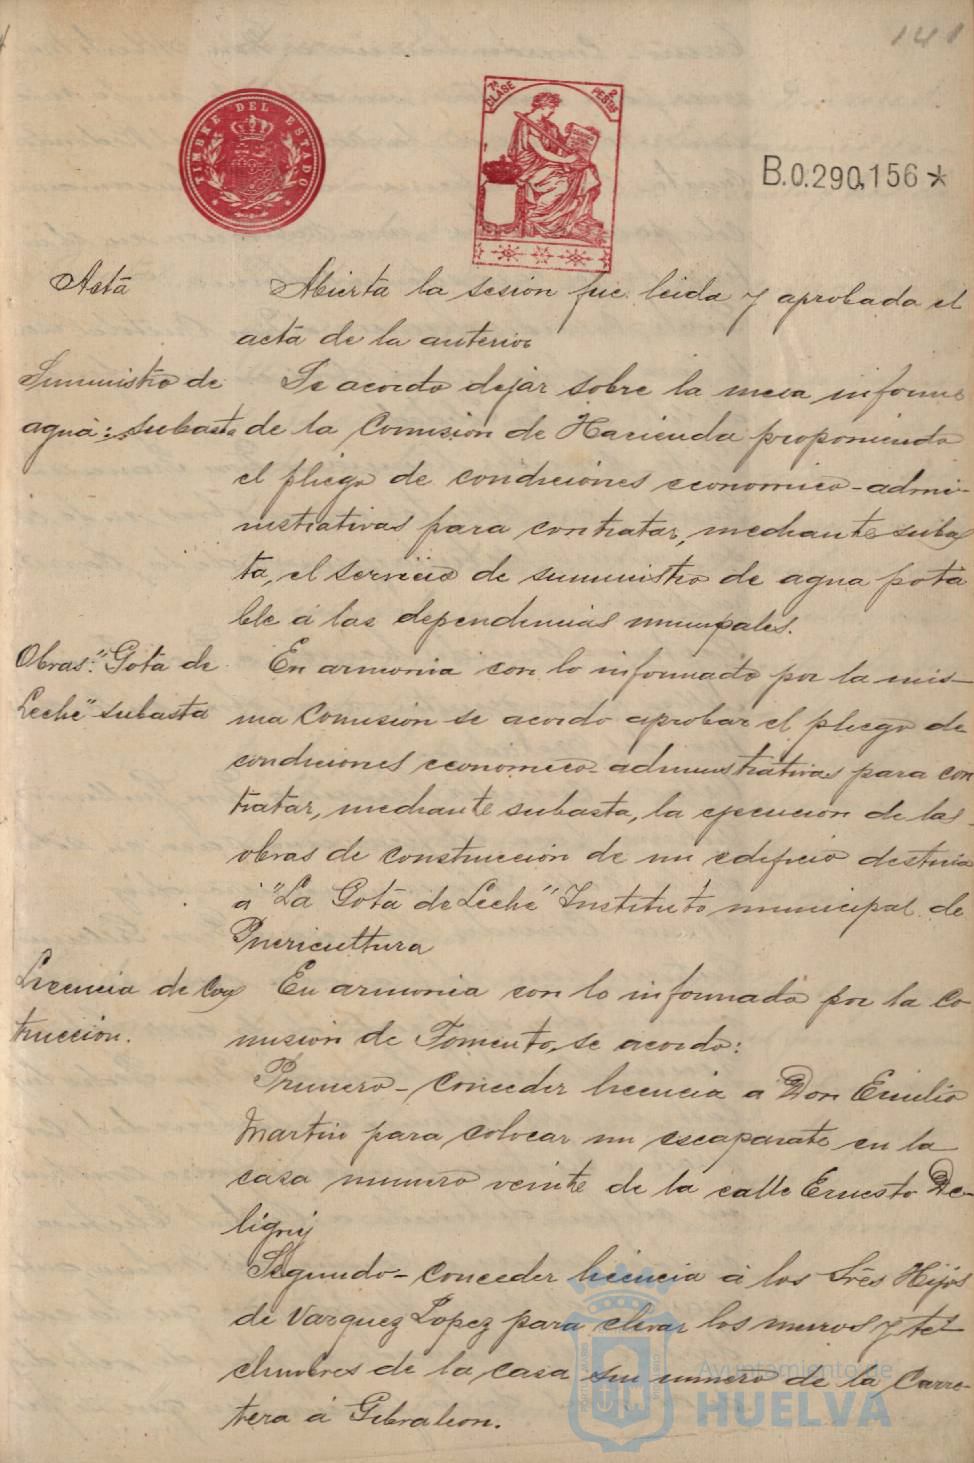 141
TIMBRE DEL ESTADO
7ª CLASE 2 PESETAS
B.0.290,156*
Acta
Abierta la sesión fue leida y aprobada el
acta de la anterior
Suministro de
agua: subasta
Se acordo dejar sobre la mesa informe
de la Comisión de Hacienda proponiendo
el pliego de condiciones economico-admi-
nistrativas para contratar, mediante subas
ta, el servicio de suministro de agua pota
ble á las dependencias municipales.
Obras: "Gota de
Leche" subasta
En armonia con lo informado por la mis-
ma Comisión se acordo aprobar el pliego de
condiciones economico-administrativas para con
tratar, mediante subasta, la ejecución de las
obras de construcción de un edificio destina
á "La Gota de Leche" Instituto municipal de
Puericultura
Licencia de Cons
trucción.
En armonia con lo informado por la Co-
misión de Fomento, se acordo:
Primero - conceder licencia a Don Emilio
Martin para colocar un escaparate en la
casa numero veinte de la calle Ernesto De-
ligny
Segundo - conceder licencia á los Sres Hijos
de Vazquez Lopez para elevar los muros y te-
chumbres de la casa sin numero de la Carre-
tera á Gibraleon.
Ayuntamiento de
HUELVA